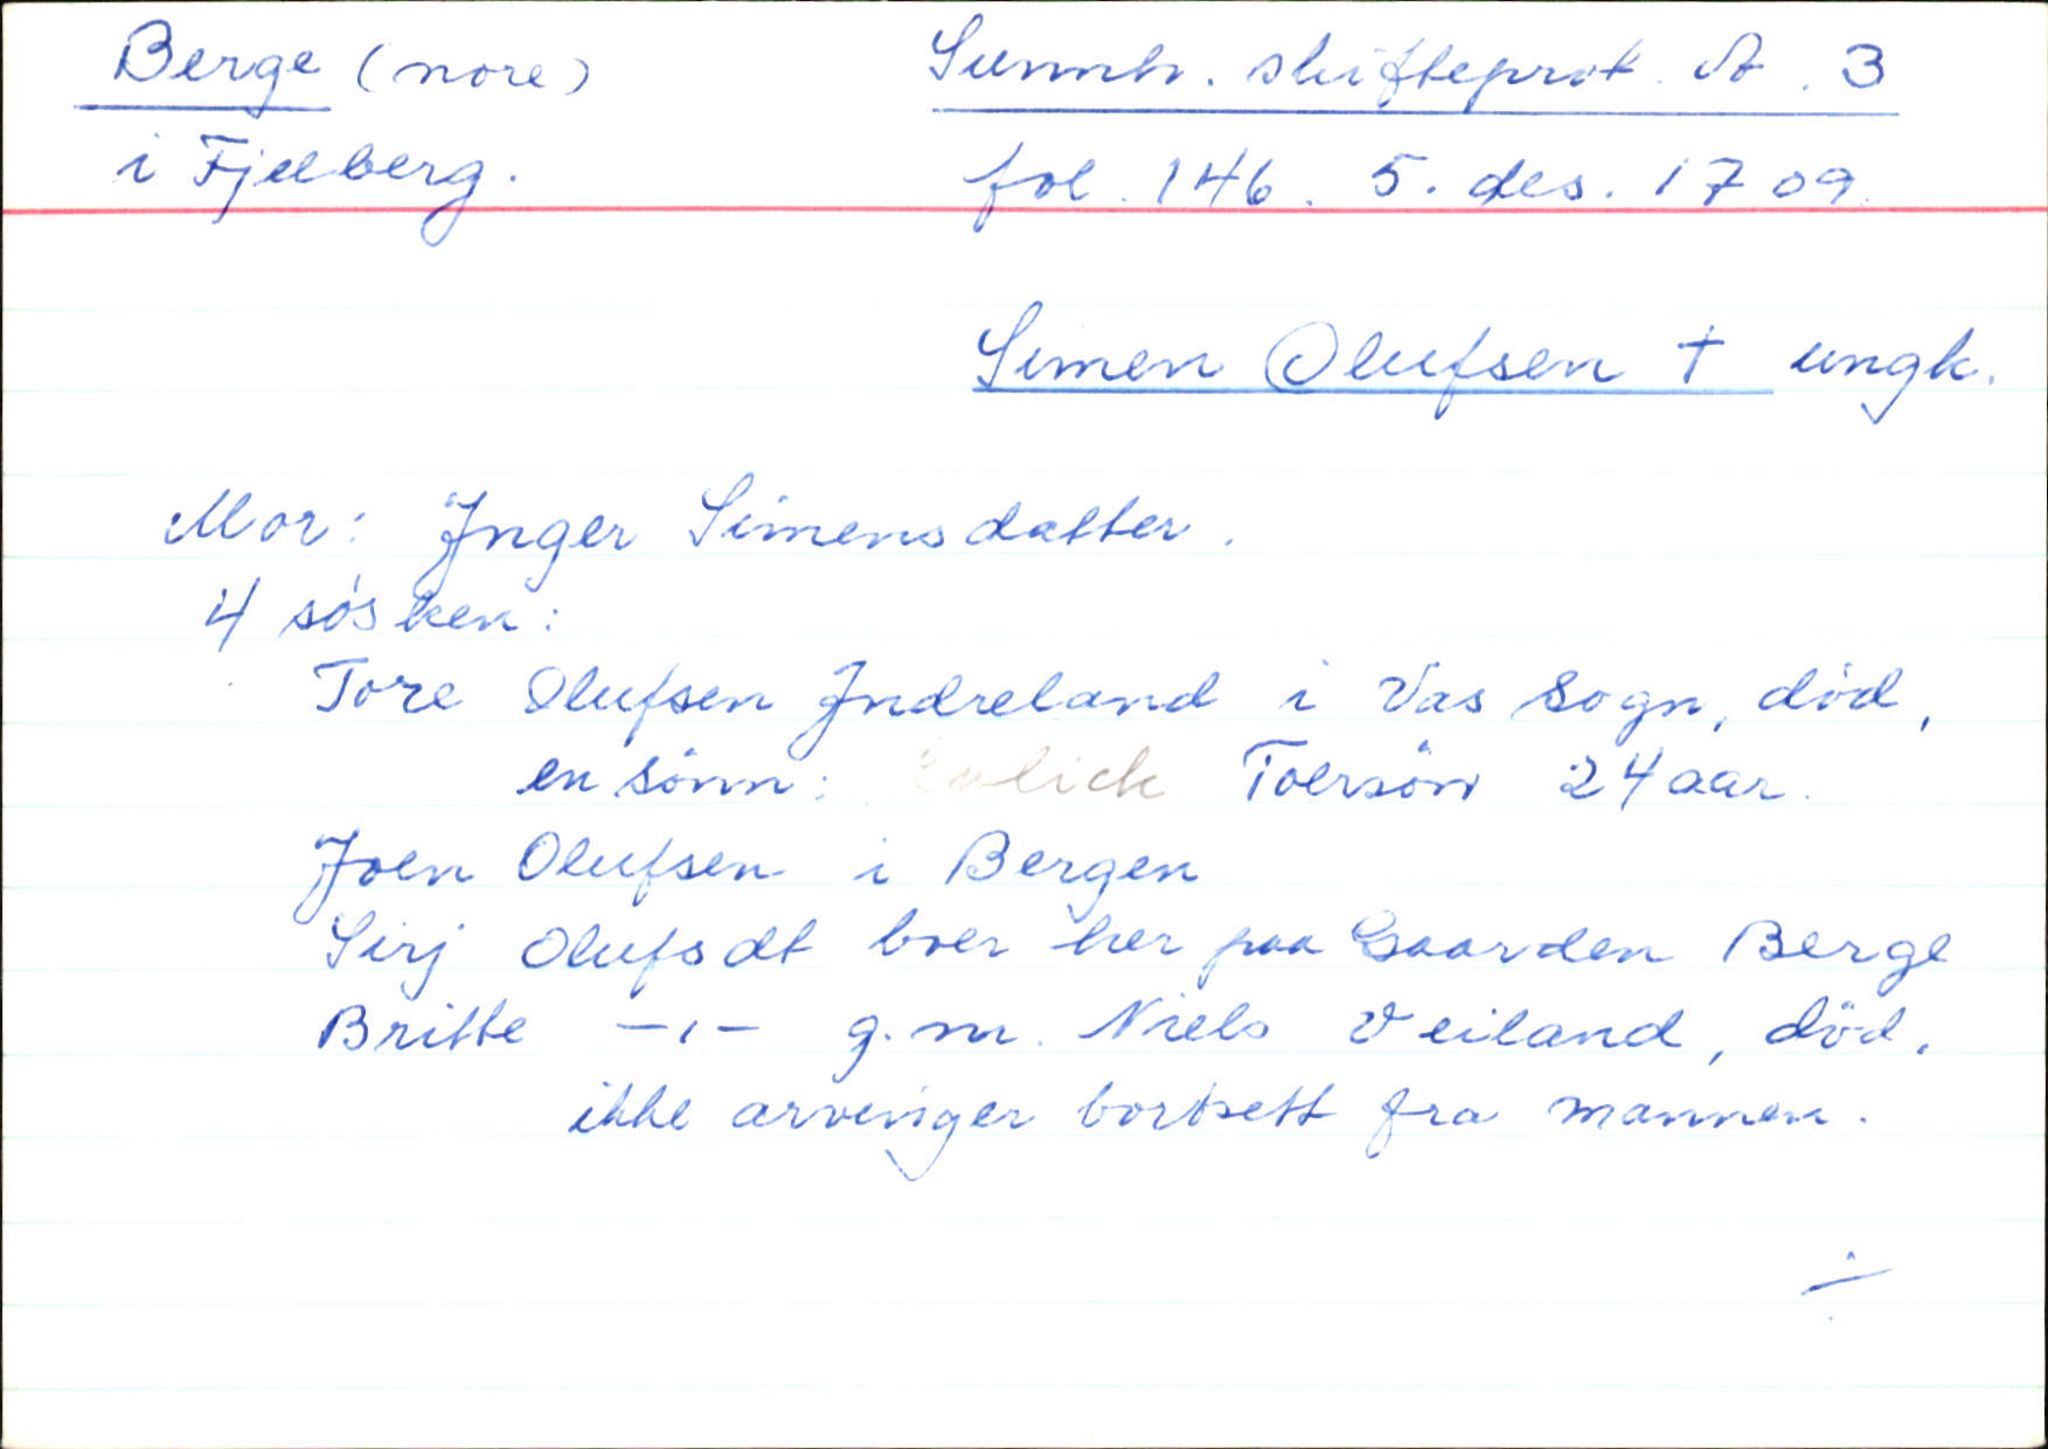 Berge (nore)
i Fjelberg.
Sunnh. skifteprot. A. 3
fol. 146. 5. des. 1709.
Simen Olufsen † ungk.
Mor: Inger Simensdatter.
4 søsken:
Tore Olufsen Indreland i Vas Sogn, død,
en sønn: Toersön 24 aar.
Joen Olufsen i Bergen
Sirj Olufsdt boer her paa Gaarden Berge
Britte —,— g.m. Niels Veiland, död,
ikke arvinger bortsett fra mannen.
÷